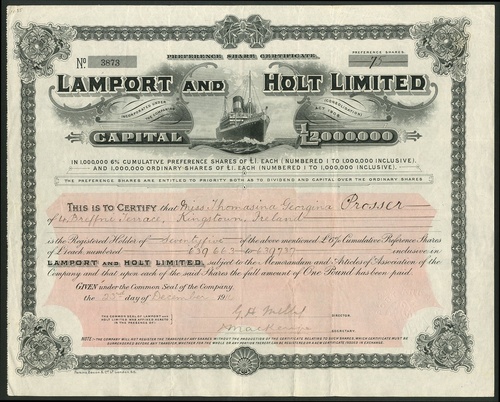 PREFERENCE SHARE CERTIFICATE.
PREFERENCE SHARES.
No 3873
75
LAMPORT AND HOLT LIMITED
INCORPORATED UNDER THE COMPANIES (CONSOLIDATION) ACT 1908
CAPITAL £2,000,000
IN 1,000,000 6% CUMULATIVE PREFERENCE SHARES OF £1. EACH (NUMBERED 1 TO 1,000,000 INCLUSIVE).
AND 1,000,000 ORDINARY SHARES OF £1. EACH (NUMBERED 1 TO 1,000,000 INCLUSIVE).
THE PREFERENCE SHARES ARE ENTITLED TO PRIORITY BOTH AS TO DIVIDEND AND CAPITAL OVER THE ORDINARY SHARES
THIS IS TO CERTIFY that Miss Thomasina Georgina Prosser
of 4 Breffni Terrace, Kingstown, Ireland
is the Registered Holder of Seventyfive of the above mentioned £6% Cumulative Preference Shares
of £1 each numbered 639,663 to 639,737 inclusive in
LAMPORT AND HOLT LIMITED, subject to the Memorandum and Articles of Association of the
Company and that upon each of the said Shares the full amount of One Pound has been paid.
GIVEN under the Common Seal of the Company
the 22nd day of December 191
THE COMMON SEAL OF LAMPORT AND
HOLT LIMITED WAS AFFIXED HERETO IN
THE PRESENCE OF:
DIRECTOR.
SECRETARY.
NOTE:- THE COMPANY WILL NOT REGISTER THE TRANSFER OF ANY SHARES WITHOUT THE PRODUCTION OF THE CERTIFICATE RELATING TO SUCH SHARES, WHICH CERTIFICATE MUST BE
SURRENDERED BEFORE ANY TRANSFER WHETHER FOR THE WHOLE OR ANY PORTION THEREOF CAN BE REGISTERED OR A NEW CERTIFICATE ISSUED IN EXCHANGE.